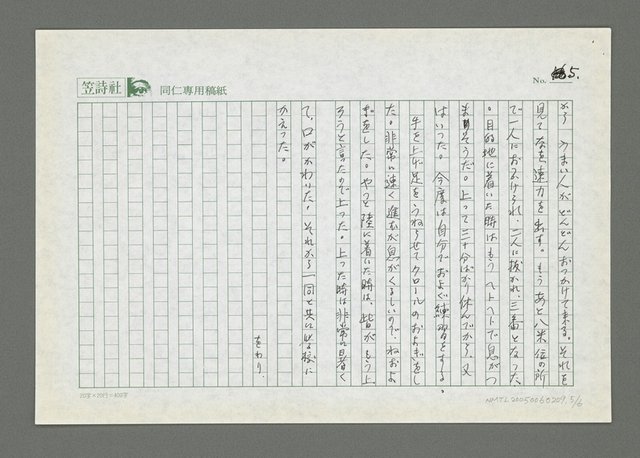 No. 5.
笠詩社
同仁專用稿紙
がら うまい人が どんどん おっかけて来る。それを
見て なを 速力を出す。もう あと 八米 位の所
で 一人に おぬけられ、二人に 抜かれ、三番となった
。目的地に着いた時は もう ヘトヘトで 息がつ
まりそうだ。上って三十分ばかり休んでから、又
はいった。今度は自分で およぐ練習をする。
手を上下 足を うねらせて クロールの およぎをし
た。非常に速く進むが 息がくるしいので、ねおよ
ぎをした。やっと陸に着いた時は、皆が もう上
ろうと言たので 上った。上った時は 非常に日暑く
て、口が かわいた。それから 一同と共に 学校に
かえった。
をわり。
20字×20行=400字
NMTL20050060209, 5/6